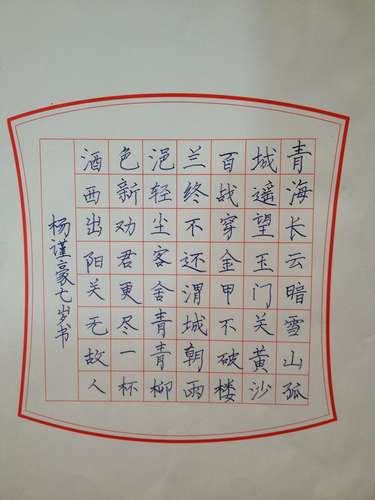 青海长云暗雪山孤
城遥望玉门关黄沙
百战穿金甲不破楼
兰终不还渭城朝雨
浥轻尘客舍青青柳
色新劝君更尽一杯
酒西出阳关无故人
杨谨豪七岁书